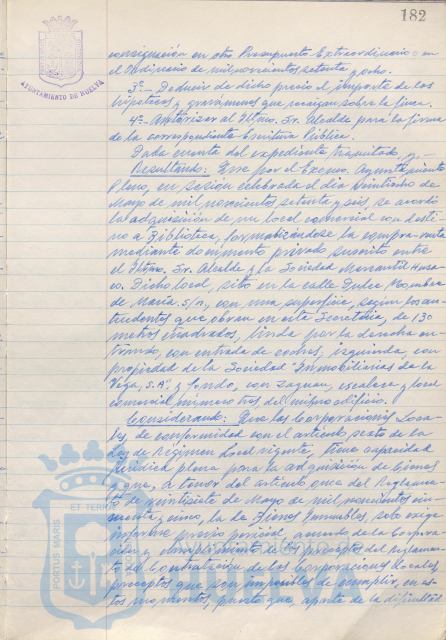 182
AYUNTAMIENTO DE HUELVA
consignación en otro Presupuesto Extraordinario o en
el Ordinario de mil novecientos setenta y ocho.
3º.- Deducir de dicho precio el importe de las
hipotecas y gravámenes que recaigan sobre la finca.
4º.- Autorizar al Iltmo. Sr. Alcalde para la firma
de la correspondiente Escritura Pública.
Dada cuenta del expediente tramitado, y
Resultando: Que por el Excmo. Ayuntamiento
Pleno, en sesión celebrada el día veintiocho de
Mayo de mil novecientos setenta y seis, se acordó
la adquisición de un local comercial con desti-
no a Biblioteca, formalizándose la compra-venta
mediante documento privado suscrito entre
el Iltmo. Sr. Alcalde y la Sociedad Mercantil
Dicho local, sito en la calle Dulce Nombre
de María s/n, con una superficie, según los an-
tecedentes que obran en esta Secretaría, de 130
metros cuadrados, linda por la derecha en-
trando, con entrada de coches, izquierda, con
propiedad de la Sociedad "Inmobiliaria de la
Vega, S.A." y fondo, con zaguán, escalera y local
comercial número tres del mismo edificio.
Considerando: Que las Corporaciones Loca-
les, de conformidad con el artículo sexto de la
Ley de Régimen Local vigente, tiene capacidad
jurídica plena para la adquisición de bienes
y que, a tenor del artículo once del Reglamen-
to de veintisiete de Mayo de mil novecientos cin-
cuenta y cinco, la de Bienes Inmuebles, solo exige
informe previo pericial, acuerdo de la Corpora-
ción y cumplimiento de los preceptos del Reglamen-
to de Contratación de las Corporaciones Locales,
preceptos que son imposibles de cumplir, en es-
tos momentos, puesto que, aparte de la dificultad
ET TERRAE
PORTUS MARIS
HUELVA